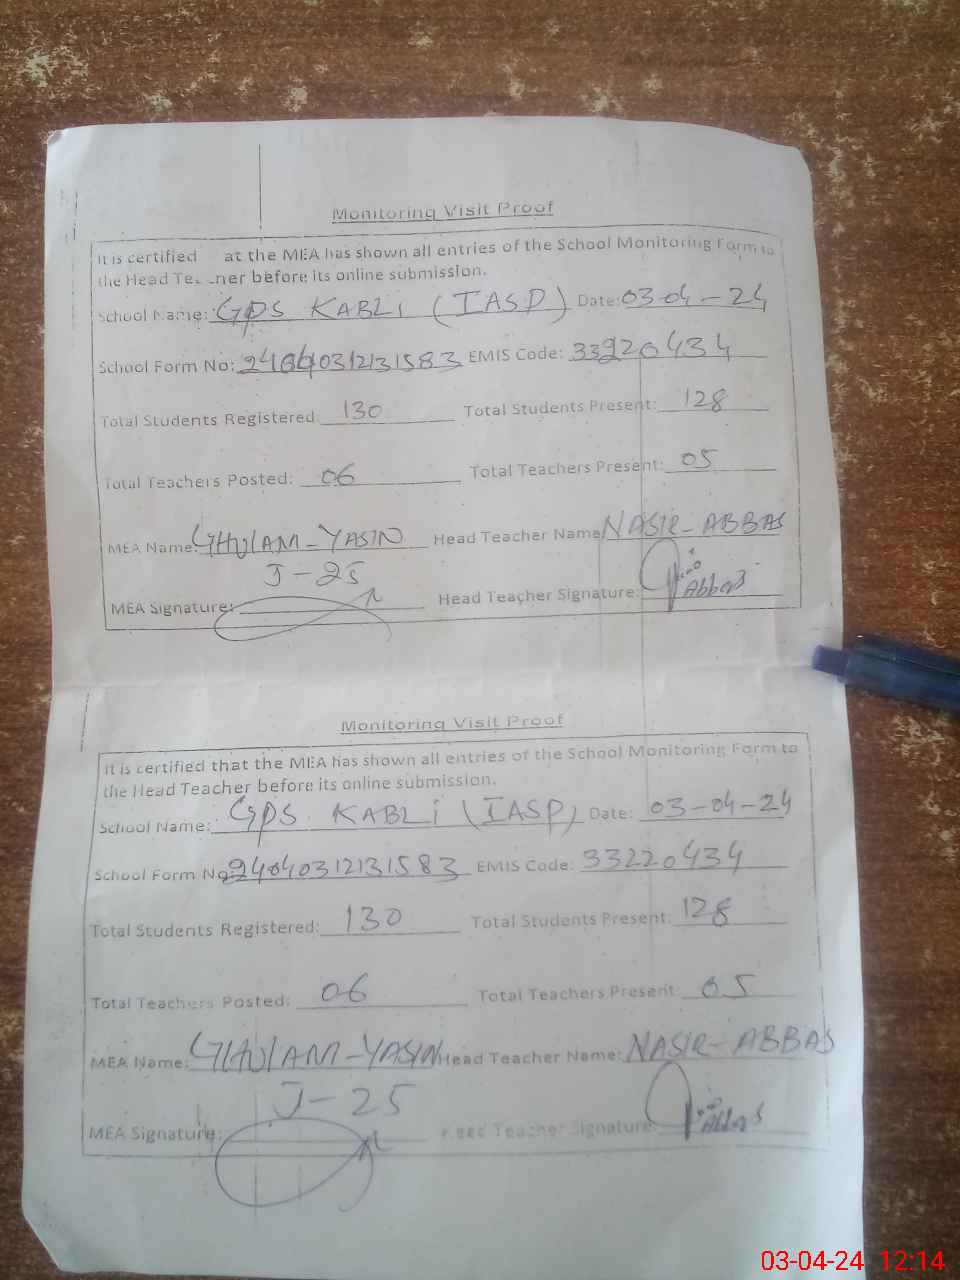 Monitoring Visit Proof
It is certified at the MEA has shown all entries of the School Monitoring Form to
the Head Te. .ner before its online submission.
School Name: GPS KABLI (IASP) Date: 03-04-24
School Form No: 2404031213 1583 EMIS Code: 33220434
Total Students Registered: 130 Total Students Present: 128
Total Teachers Posted: 06 Total Teachers Present: 05
MEA Name: GHULAM-YASIN Head Teacher Name NASIR-ABBAS
J-25
MEA Signature: Head Teacher Signature: Abbas
Monitoring Visit Proof
It is certified that the MEA has shown all entries of the School Monitoring Form to
the Head Teacher before its online submission.
School Name: GPS KABLI (IASP) Date: 03-04-24
School Form No: 24040312131583 EMIS Code: 33220434
Total Students Registered: 130 Total Students Present: 128
Total Teachers Posted: 06 Total Teachers Present: 05
MEA Name: GHULAM-YASIN Head Teacher Name: NASIR-ABBAS
J-25
MEA Signature: Head Teacher Signature: Abbas
03-04-24 12:14